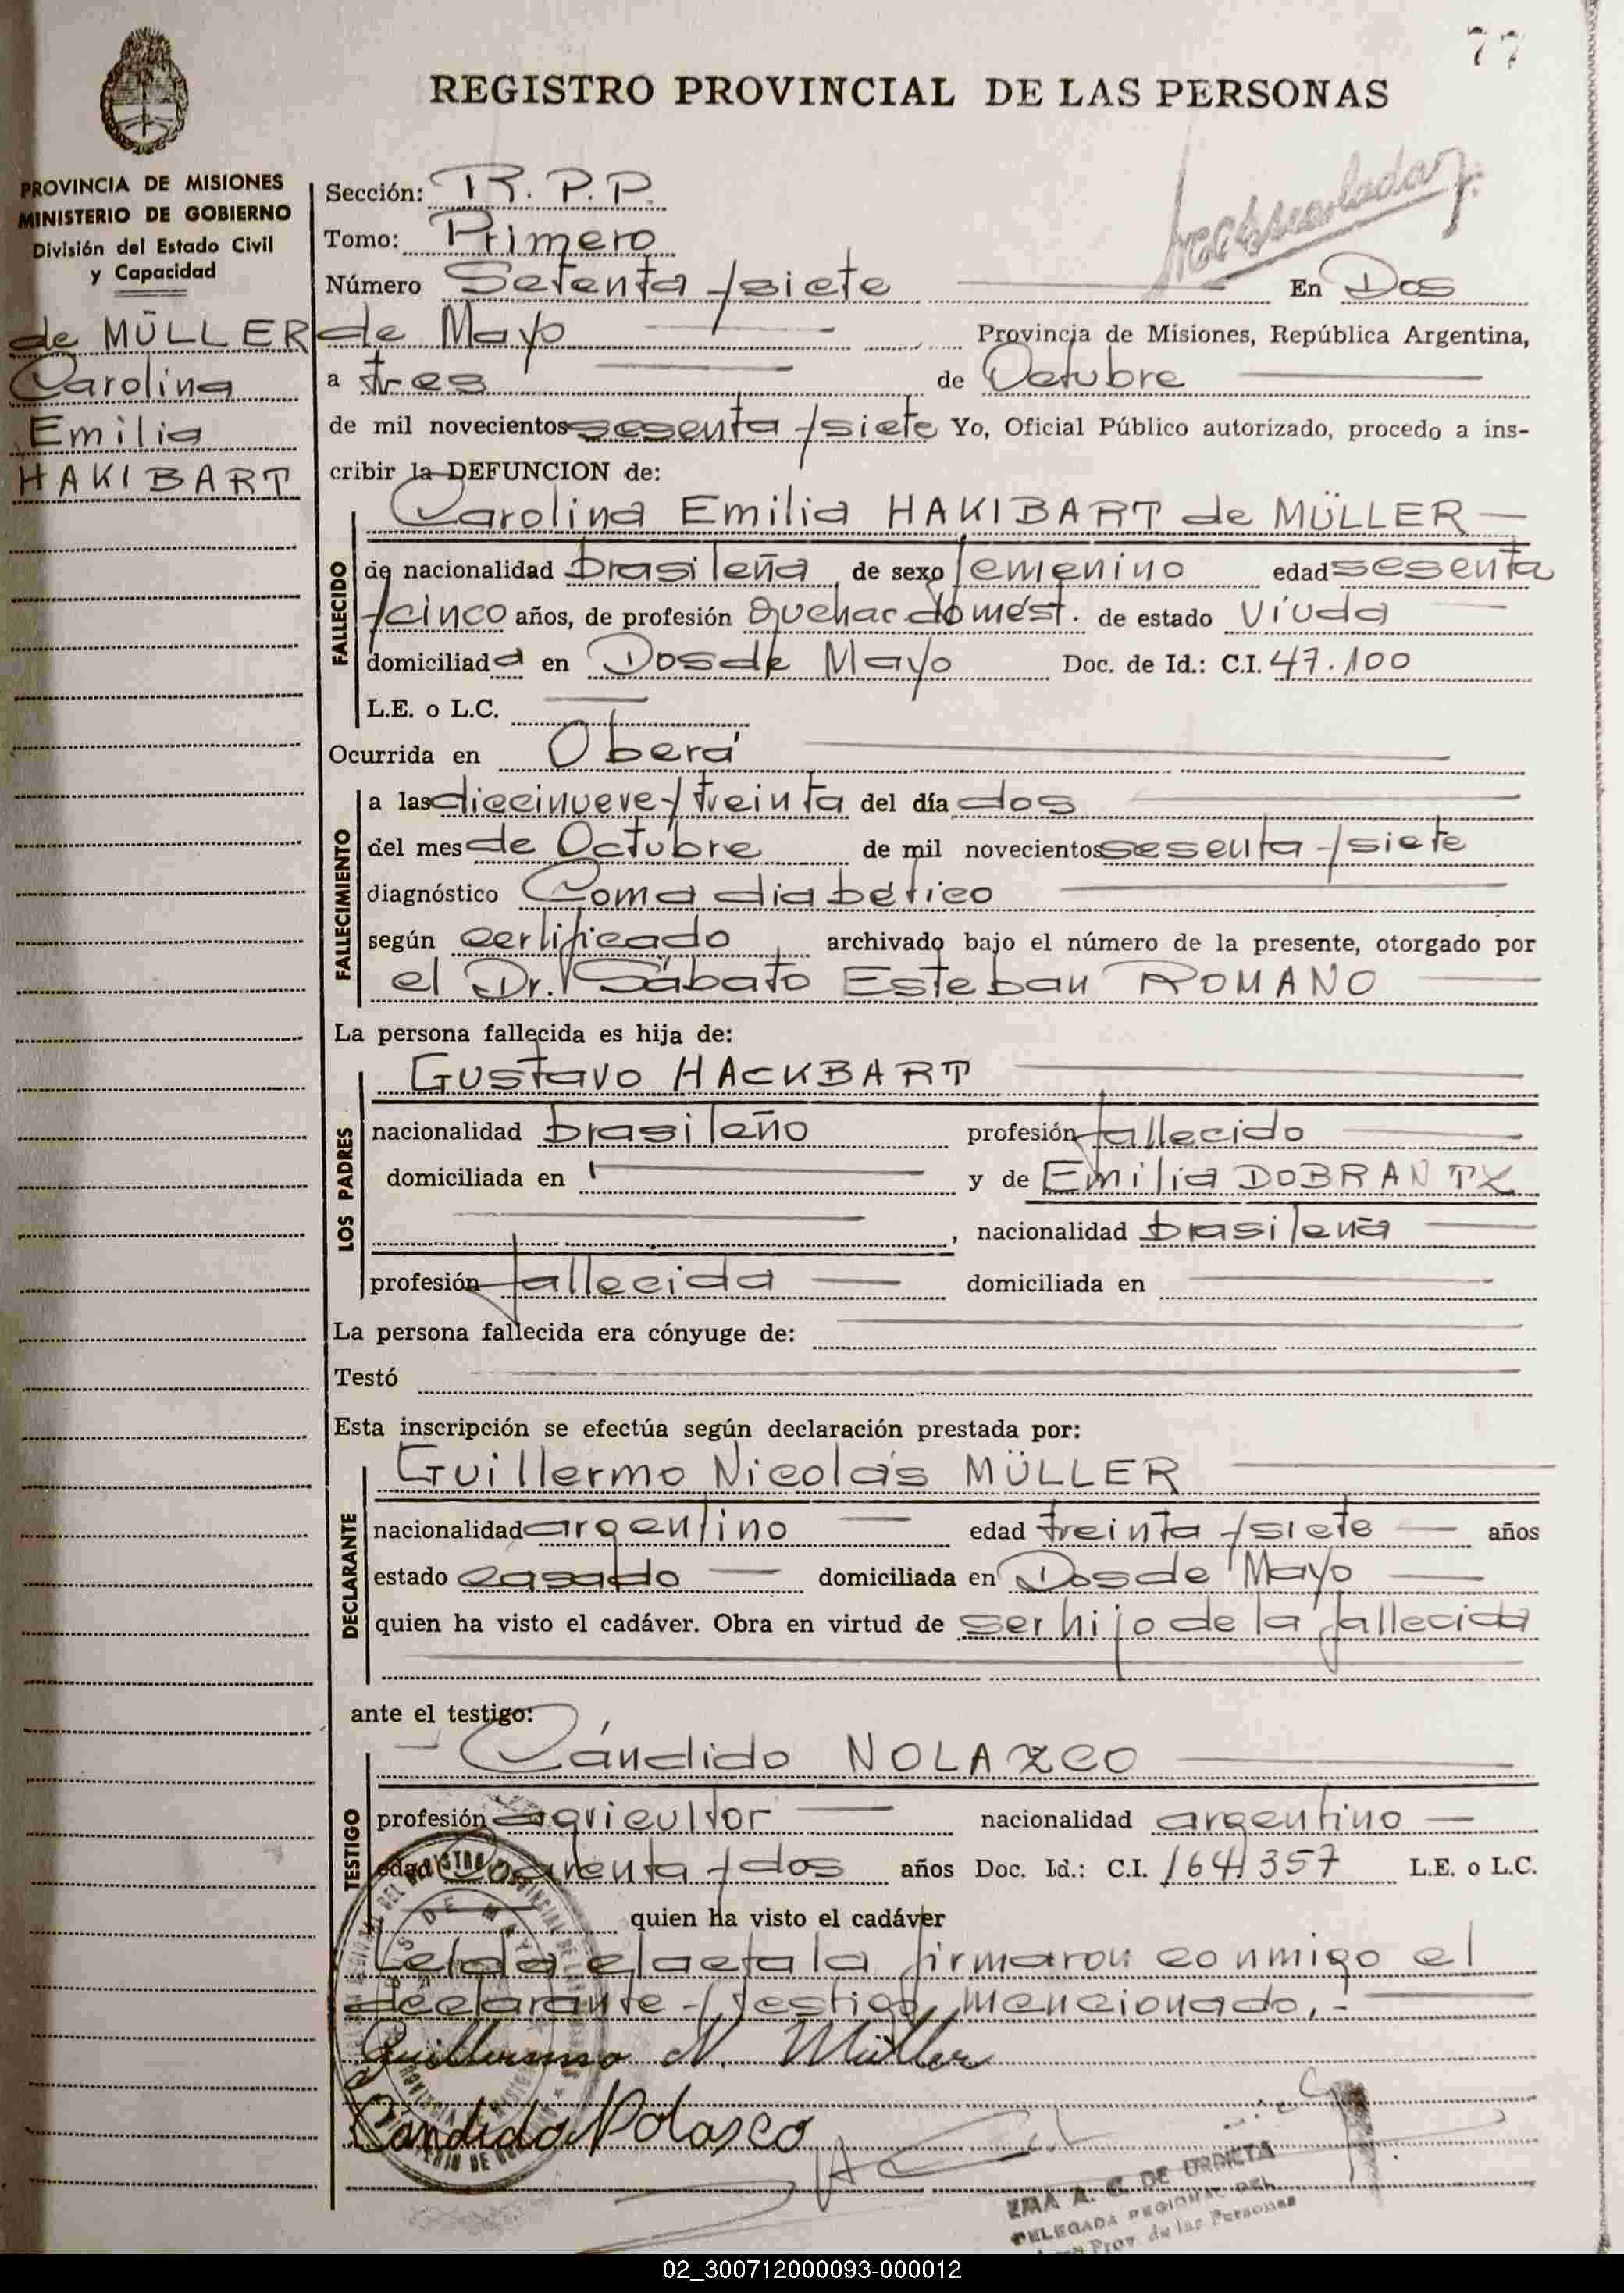 77
REGISTRO PROVINCIAL DE LAS PERSONAS
PROVINCIA DE MISIONES
MINISTERIO DE GOBIERNO
División del Estado Civil
y Capacidad
de MÜLLER
Carolina
Emilia
HAKIBART
Sección: R.P.P.
Tomo: Primero
Número Setenta y siete En Dos
de Mayo Provincia de Misiones, República Argentina,
a tres de Octubre
de mil novecientos sesenta y siete Yo, Oficial Público autorizado, procedo a ins-
cribir la DEFUNCION de:
Carolina Emilia HAKIBART de MÜLLER
FALLECIDO
de nacionalidad brasileña, de sexo femenino edad sesenta
y cinco años, de profesión Quehac. domést. de estado viuda
domiciliada en Dos de Mayo Doc. de Id.: C.I. 47.100
L.E. o L.C.
Ocurrida en Oberá
FALLECIMIENTO
a las diecinueve y treinta del día dos
del mes de Octubre de mil novecientos sesenta y siete
diagnóstico Coma diabético
según certificado archivado bajo el número de la presente, otorgado por
el Dr. Sábato Esteban ROMANO
La persona fallecida es hija de:
LOS PADRES
Gustavo HACKBART
nacionalidad brasileño profesión fallecido
domiciliada en y de Emilia DOBRANTZ
, nacionalidad brasileña
profesión fallecida domiciliada en
La persona fallecida era cónyuge de:
Testó
Esta inscripción se efectúa según declaración prestada por:
DECLARANTE
Guillermo Nicolás MÜLLER
nacionalidad argentino edad treinta y siete años
estado casado domiciliada en Dos de Mayo
quien ha visto el cadáver. Obra en virtud de ser hijo de la fallecida
ante el testigo:
TESTIGO
Cándido NOLAZCO
profesión agricultor nacionalidad argentino
edad cuarenta y dos años Doc. Id.: C.I. 164357 L.E. o L.C.
quien ha visto el cadáver
Leída el acta la firmaron conmigo el
declarante y testigo mencionado.-
Guillermo N. Müller
Candido Nolasco
EMA A. C. DE URDIETA
DELEGADA REGIONAL DEL
Prov. de las Personas
02_300712000093-000012